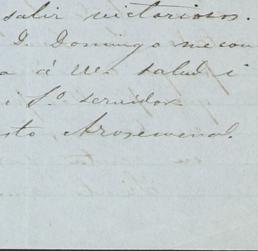 salir victoriosos.
D. Domingo me con
a á U. salud i
i S.º servidor
sto Arosemena.